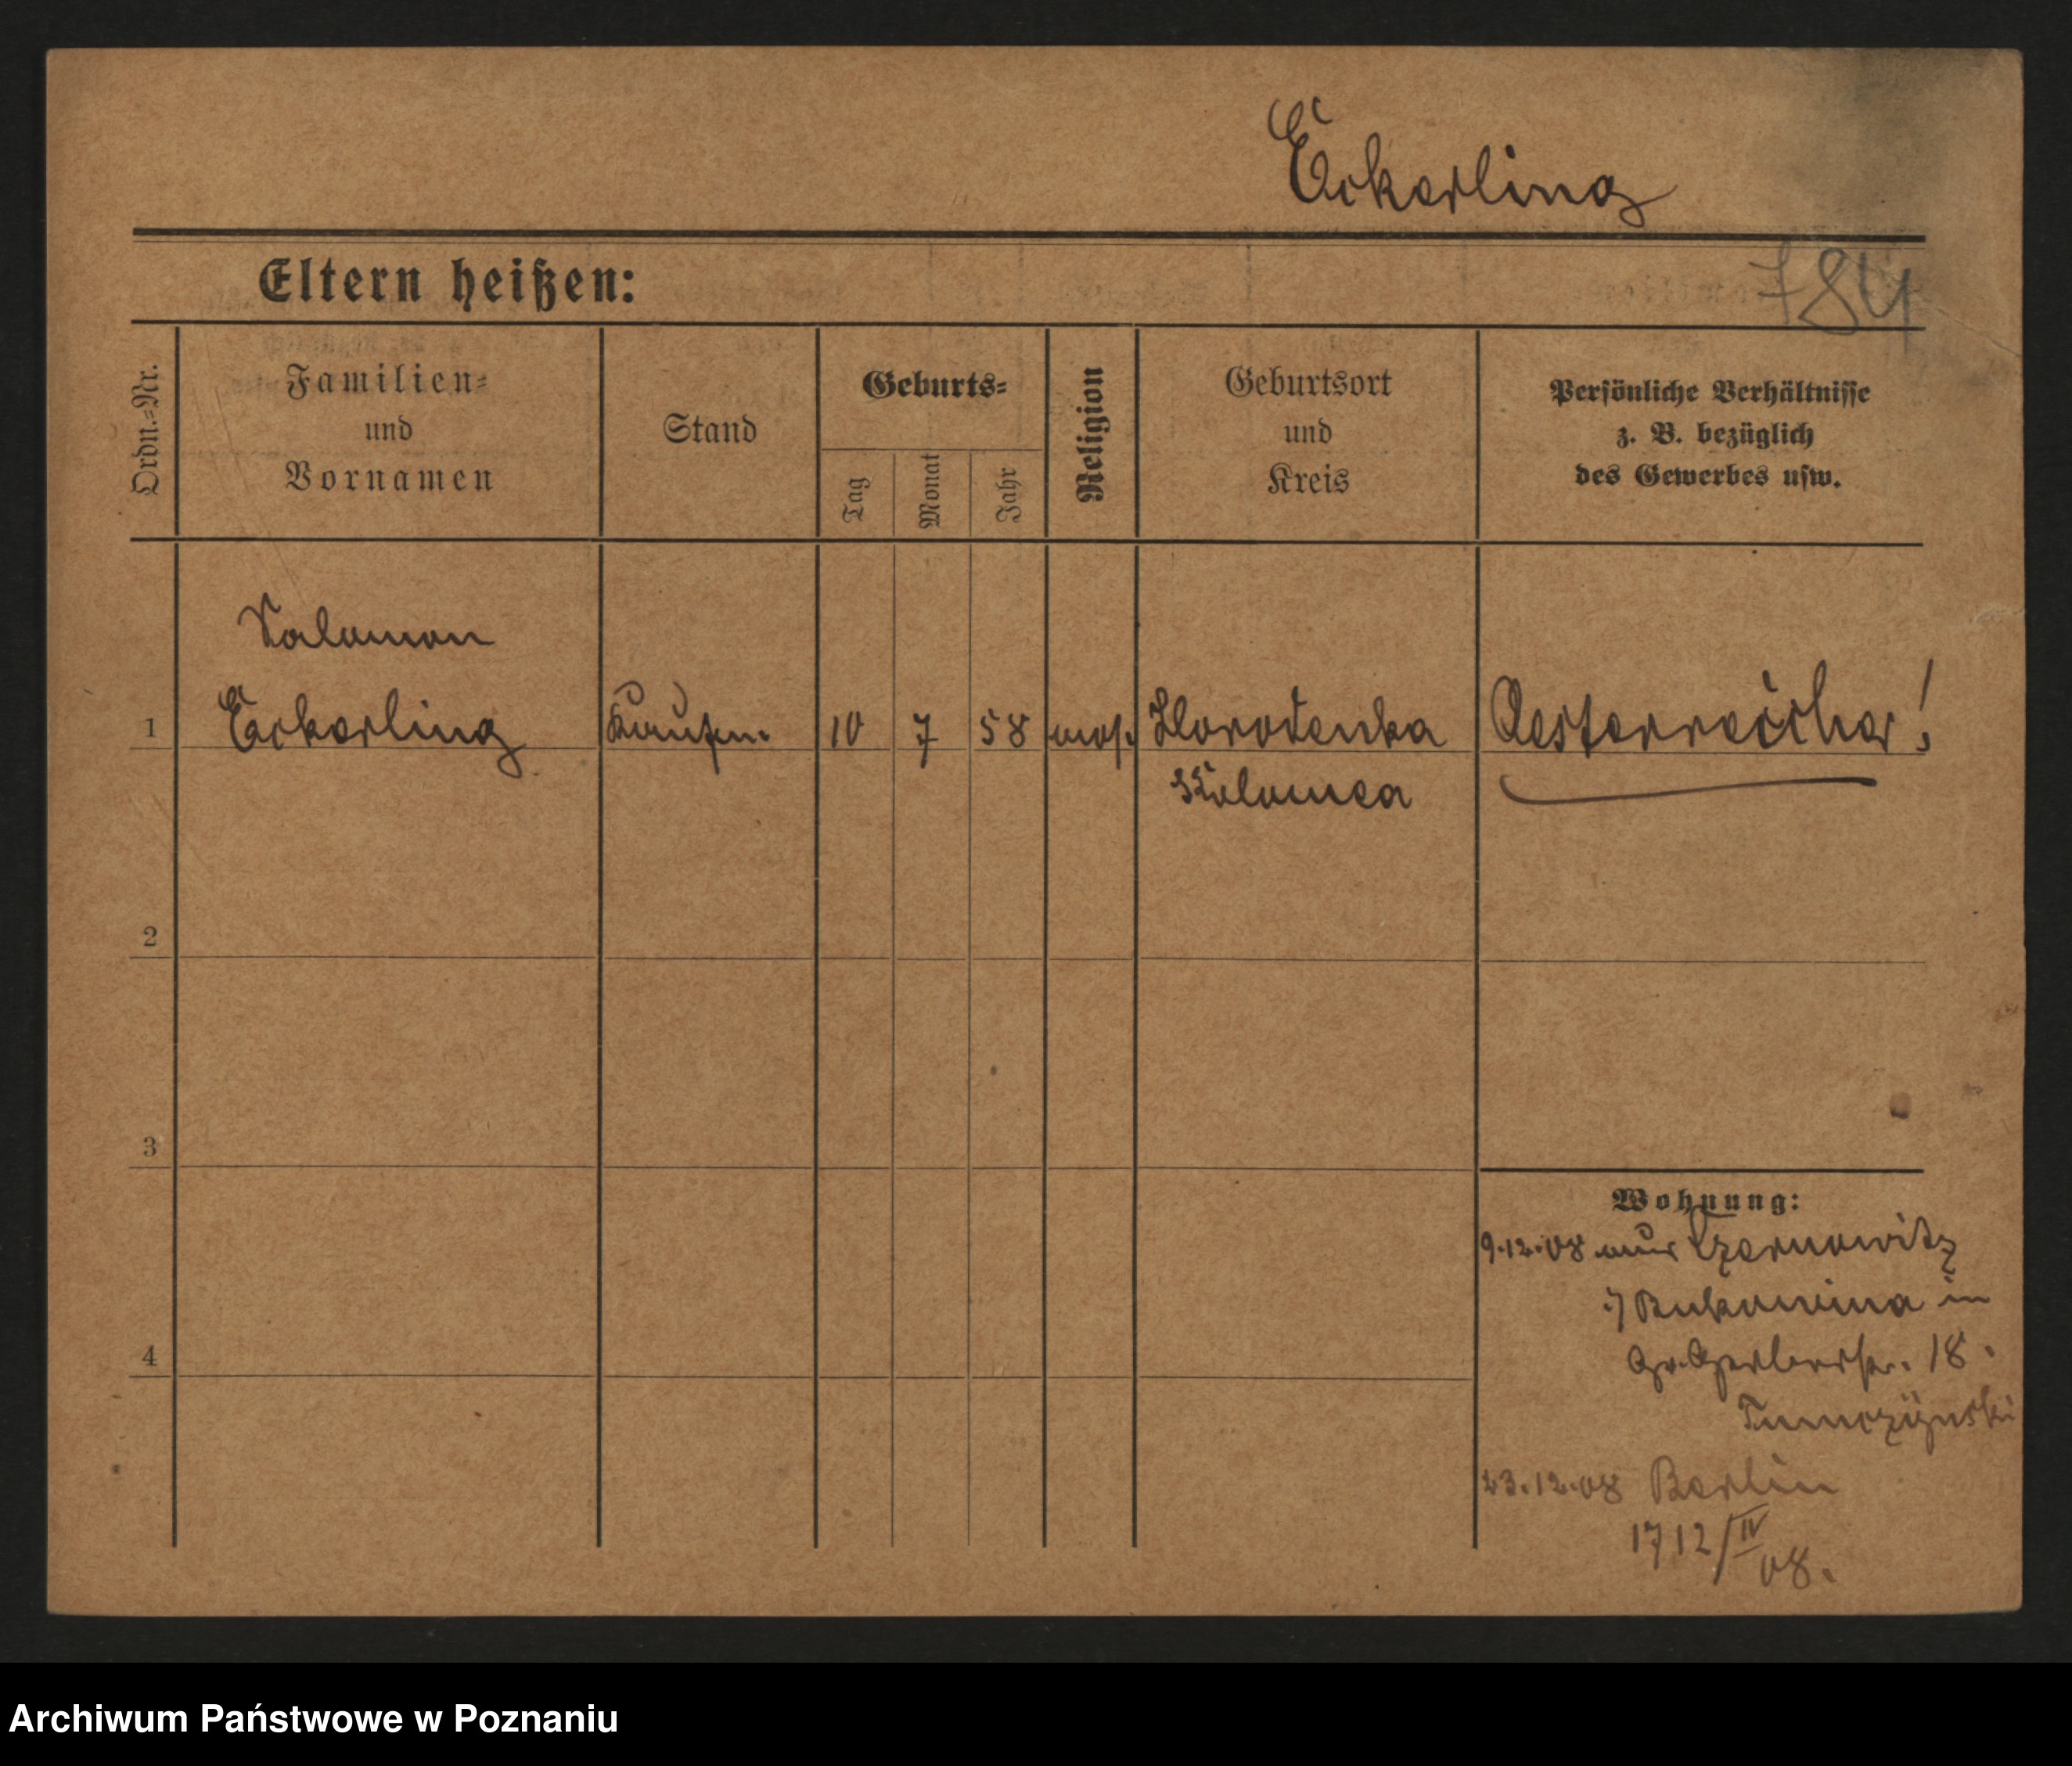 Eckerling
Eltern heißen:
784
Ordn.=Nr.
Familien=
und
Vornamen
Stand
Geburts=
Tag
Monat
Jahr
Religion
Geburtsort
und
Kreis
Persönliche Verhältnisse
z. B. bezüglich
des Gewerbes usw.
Salomon
1 Eckerling Kaufm. 10 7 58 mos. Horodenka Oesterreicher!
Kolomea
2
3
4
Wohnung:
9.12.08 aus Czernowitz
Bukowina in
Gr. Gerberstr. 18.
23.12.08 Berlin
1712/IV
08.
Archiwum Państwowe w Poznaniu